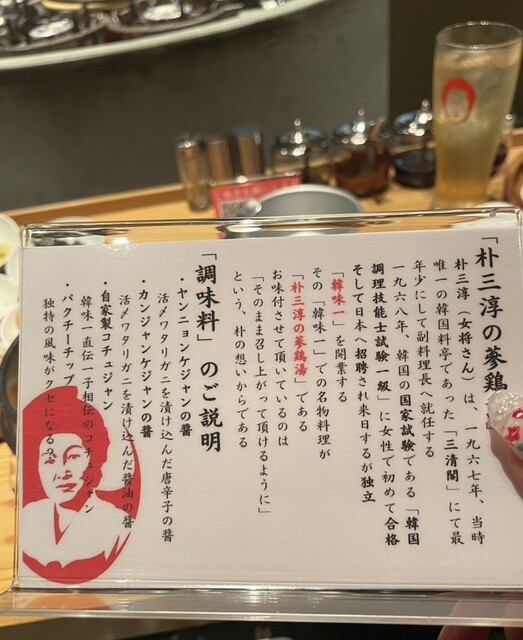 「朴三淳の蔘鶏
朴三淳（女将さん）は、一九六七年、当時
唯一の韓国料亭であった「三清閣」にて最
年少にして副料理長へ就任する
一九六八年、韓国の国家試験である「韓国
調理技能士試験一級」に女性で初めて合格
そして日本へ招聘され来日するが独立
「韓味一」を開業する
その「韓味一」での名物料理が
「朴三淳の蔘鶏湯」である
お味付させて頂いているのは
「そのまま召し上がって頂けるように」
という、朴の想いからである
「調味料」のご説明
・ヤンニョンケジャンの醤
活〆ワタリガニを漬け込んだ唐辛子の醤
・カンジャンケジャンの醤
活〆ワタリガニを漬け込んだ醤油の醤
・自家製コチュジャン
韓味一直伝一子相伝のコチュジャン
・パクチーチップ
独特の風味がクセになる？